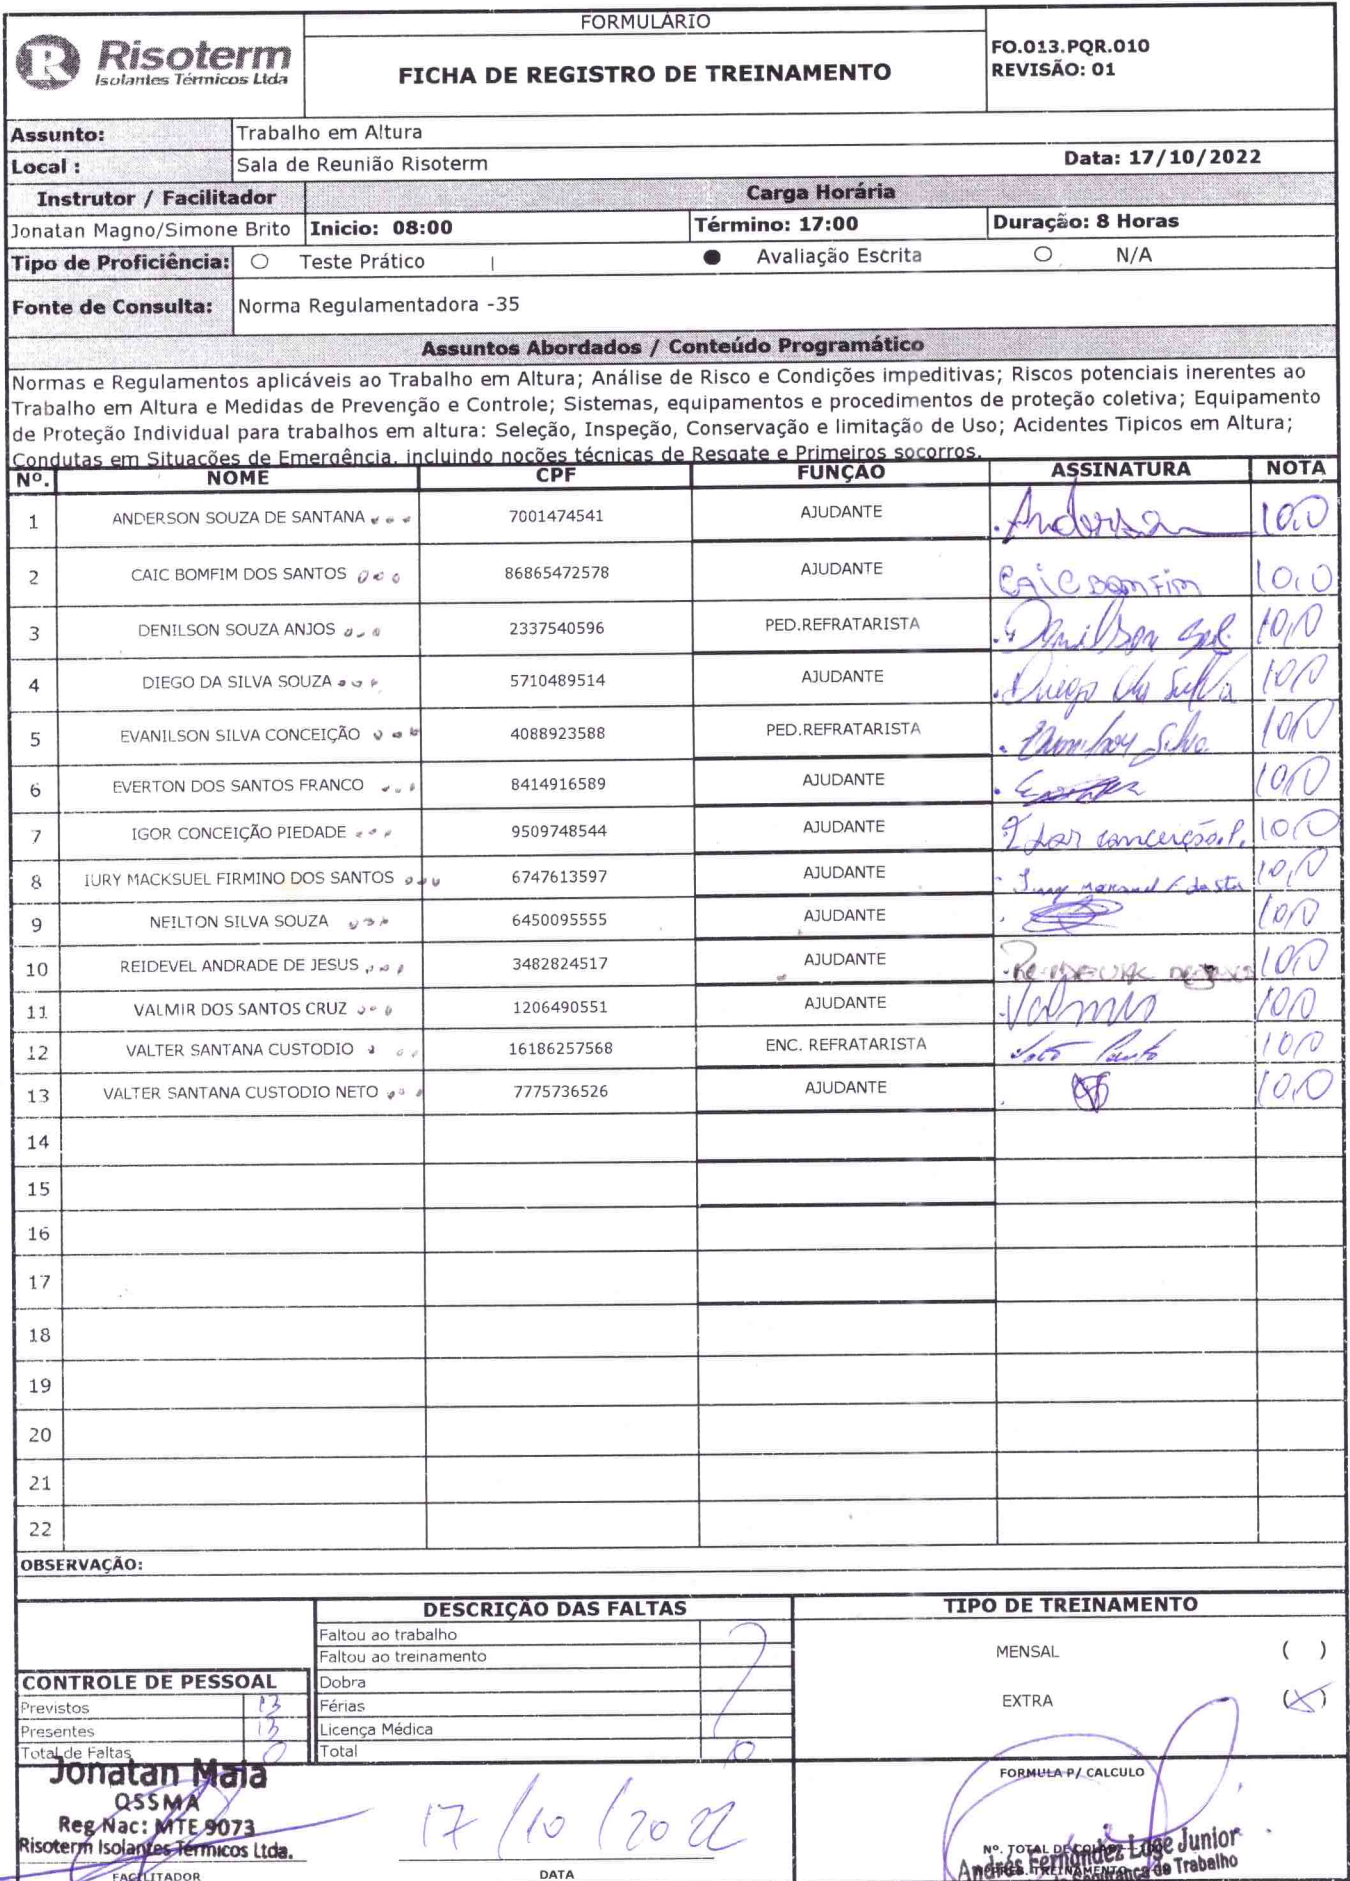 FORMULÁRIO
R Risoterm
Isolantes Térmicos Ltda
FICHA DE REGISTRO DE TREINAMENTO
FO.013.PQR.010
REVISÃO: 01
Assunto: Trabalho em Altura
Local : Sala de Reunião Risoterm Data: 17/10/2022
Instrutor / Facilitador Carga Horária
Jonatan Magno/Simone Brito Inicio: 08:00 Término: 17:00 Duração: 8 Horas
Tipo de Proficiência: Teste Prático Avaliação Escrita N/A
Fonte de Consulta: Norma Regulamentadora -35
Assuntos Abordados / Conteúdo Programático
Normas e Regulamentos aplicáveis ao Trabalho em Altura; Análise de Risco e Condições impeditivas; Riscos potenciais inerentes ao
Trabalho em Altura e Medidas de Prevenção e Controle; Sistemas, equipamentos e procedimentos de proteção coletiva; Equipamento
de Proteção Individual para trabalhos em altura: Seleção, Inspeção, Conservação e limitação de Uso; Acidentes Tipicos em Altura;
Condutas em Situações de Emergência, incluindo noções técnicas de Resgate e Primeiros socorros.
Nº. NOME CPF FUNÇÃO ASSINATURA NOTA
1 ANDERSON SOUZA DE SANTANA 7001474541 AJUDANTE Anderson 10,0
2 CAIC BOMFIM DOS SANTOS 86865472578 AJUDANTE CAIC BOMFIM 10,0
3 DENILSON SOUZA ANJOS 2337540596 PED.REFRATARISTA Denilson 10,0
4 DIEGO DA SILVA SOUZA 5710489514 AJUDANTE Diego da Silva 10,0
5 EVANILSON SILVA CONCEIÇÃO 4088923588 PED.REFRATARISTA Silva 10,0
6 EVERTON DOS SANTOS FRANCO 8414916589 AJUDANTE 10,0
7 IGOR CONCEIÇÃO PIEDADE 9509748544 AJUDANTE Igor conceição.P. 10,0
8 IURY MACKSUEL FIRMINO DOS SANTOS 6747613597 AJUDANTE 10,0
9 NEILTON SILVA SOUZA 6450095555 AJUDANTE 10,0
10 REIDEVEL ANDRADE DE JESUS 3482824517 AJUDANTE 10,0
11 VALMIR DOS SANTOS CRUZ 1206490551 AJUDANTE Valmir 10,0
12 VALTER SANTANA CUSTODIO 16186257568 ENC. REFRATARISTA 10,0
13 VALTER SANTANA CUSTODIO NETO 7775736526 AJUDANTE 10,0
14
15
16
17
18
19
20
21
22
OBSERVAÇÃO:
DESCRIÇÃO DAS FALTAS TIPO DE TREINAMENTO
Faltou ao trabalho
Faltou ao treinamento MENSAL ( )
CONTROLE DE PESSOAL Dobra
Previstos 13 Férias EXTRA (X)
Presentes 13 Licença Médica
Total de Faltas 0 Total 0
Jonatan Maia
QSSMA
Reg Nac: MTE 9073
Risoterm Isolantes Térmicos Ltda.
FACILITADOR
17/10/2022
DATA
FORMULA P/ CALCULO
Nº. TOTAL DE
Andrés Fernandez Loge Junior
TREINAMENTO
Segurança do Trabalho